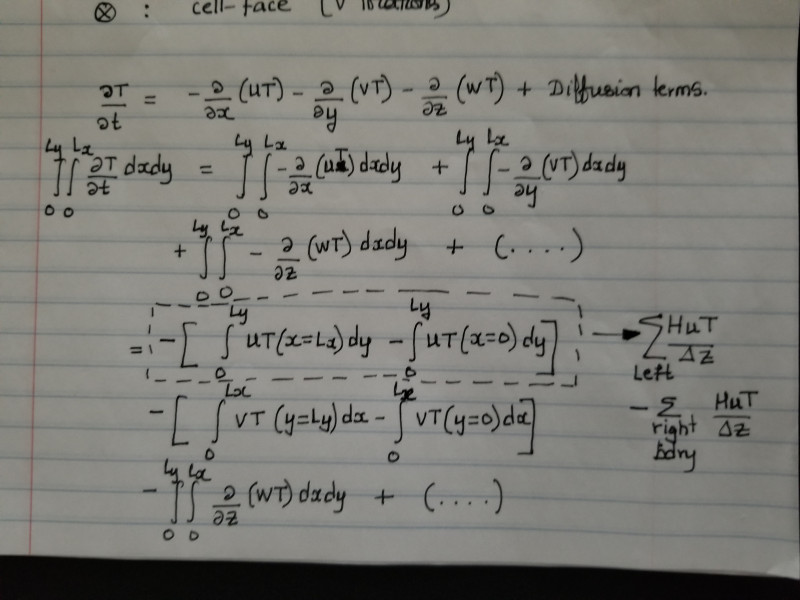 ⊗ : cell-face (V locations)
∂T/∂t = -∂/∂x (uT) - ∂/∂y (VT) - ∂/∂z (WT) + Diffusion terms.
∫₀^Ly ∫₀^Lx ∂T/∂t dxdy = ∫₀^Ly ∫₀^Lx -∂/∂x (uT) dxdy + ∫₀^Ly ∫₀^Lx -∂/∂y (VT) dxdy
+ ∫₀^Ly ∫₀^Lx -∂/∂z (WT) dxdy + (....)
= -[ ∫₀^Ly uT(x=Lx) dy - ∫₀^Ly uT(x=0) dy ] → ∑_Left HuT/Δz
-[ ∫₀^Lx VT (y=Ly) dx - ∫₀^Lx VT(y=0) dx ] - ∑_right bdry HuT/Δz
- ∫₀^Ly ∫₀^Lx ∂/∂z (WT) dxdy + (....)